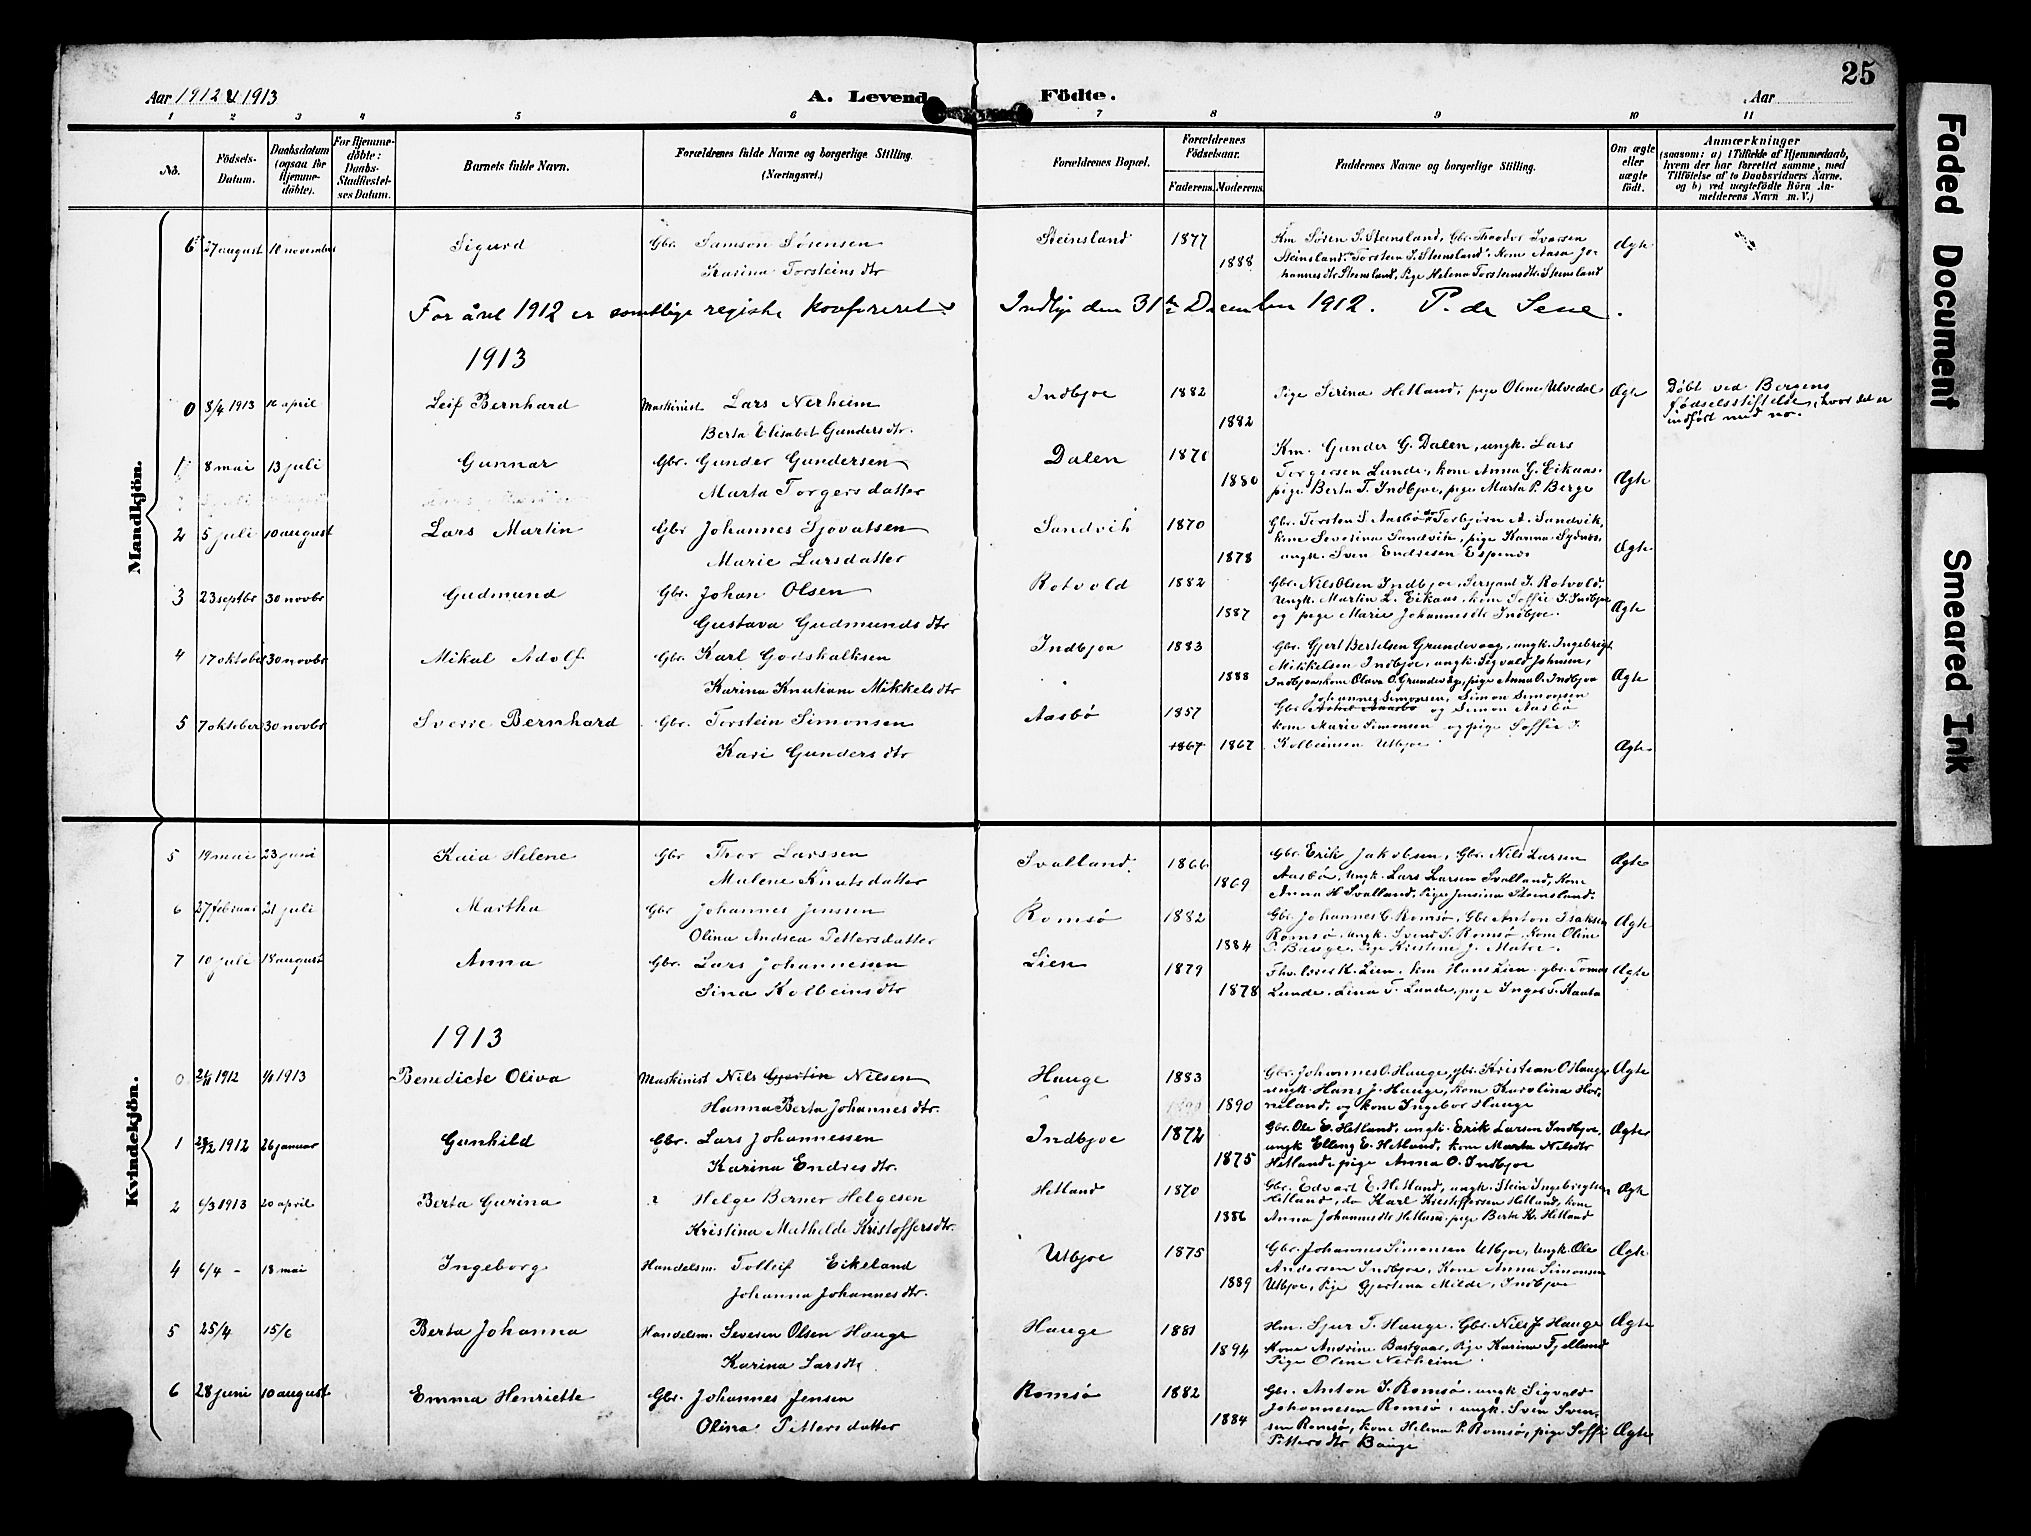 25
Aar 1912 & 1913
A. Levend Födte.
Aar
1 2 3 4 5 6 7 8 9 10 11
No.
Födsels-Datum.
Daabsdatum (ogsaa for Hjemmedöbte).
For Hjemmedöbte: Daabs-Stadfæstelses Datum.
Barnets fulde Navn.
Forældrenes fulde Navne og borgerlige Stilling. (Næringsvei.)
Forældrenes Bopæl.
Forældrenes Födselsaar.
Faderens. Moderens.
Faddernes Navne og borgerlige Stilling.
Om ægte eller uægte født.
Anmærkninger
(saasom: a) i Tilfælde af Hjemmedaab, hvem der har forrettet samme, med Tilföielse af to Daabsvidners Navne, og b) ved uægtefödte Börn Anmelderens Navn m. V.)
Mandkjön.
6 27 august 10 november Sigurd Gbr. Samson Sørensen Steinsland 1877 Km Søren S. Steinsland, Gbr. Theodor Ivarsen Ægte
Karina Torsteinsdtr 1888 Steinsland, Torstein S. Steinsland, Kone Aasa Jo-
hannesdtr Steinsland, Pige Helena Torsteinsdtr Steinsland
For året 1912 er samtlige registre konfereret. Indbjo den 31te December 1912. P. de Seue.
1913
0 8/4 1913 10 april Leif Bernhard Maskinist Lars Nerheim Indbjoe 1882 Pige Serina Hetland, pige Oline Ulvedal Ægte Døbt ved Bergens
Berta Elisabet Gundersdtr. 1882 fødselsstiftelse, hvor det er
indført med no.
1 8 mai 13 juli Gunnar Gbr. Gunder Gundersen Dalen 1871 Km. Gunder G. Dalen, ungk. Lars
Marta Torgersdatter 1880 Torgersen Lunde, kone Anna G. Eikaas, Ægte
pige Berta T. Indbjoe, pige Marta P. Berge
2 5 juli 10 august Lars Martin Gbr Johannes Sjovatsen Sandvik 1870 Gbr. Torsten S. Aasbø, Torbjørn A. Sandvik,
Marie Larsdatter 1878 kone Severina Sandvik, pige Kanna Sydnes, Ægte
ungk. Sven Endresen Espenes
3 23 septbr 30 novbr Gudmund Gbr. Johan Olsen Rotvold 1882 Gbr. Nils Olsen Indbjoe, Sersjant J. Rotvold,
Gustava Gudmundsdtr 1887 Ungk. Martin L. Eikaas, kone Soffie J. Indbjoe Ægte
og pige Marie Johannesdtr Indbjoe.
4 17 oktober 30 novbr Mikal Adolf Gbr. Karl Godskalksen Indbjoe 1883 Gbr. Gjert Bertelsen Grundevaag, ungk. Ingebrigt
Karina Knutiane Mikkelsdtr 1888 Mikkelsen Indbjoe, ungk. Sigvald Johnsen,
Indbjoe, kone Olava O. Grundevåg, pige Anna O. Indbjoe Ægte
5 7 oktober 30 novbr Sverre Bernhard Gbr. Torstein Simonsen Aasbö 1857 Johannes Simonsen, Simon Simonsen
Gbr. og Simon Aasbö
Kari Gundersdtr 1867 1867 kone Marie Simonsen og pige Soffie J.
Kolbeinsen Utbjoe Ægte
Kvindekjön.
5 19 mai 23 juni Kaia Helene Gbr Thor Larssen Svalland. 1866 Gbr. Erik Jakobsen, Gbr. Nils Larsen Ægte
Malene Knutsdatter 1869 Aasbö, Ungk. Lars Larsen Svalland, Kone
Anna H Svalland, Pige Jensina Steinsland.
6 27 februar 21 juli Martha Gbr Johannes Jenssen Romsø 1882 Gbr. Johannes C. Romsø, Gbr Anton Isaksen Ægte
Olina Andrea Pettersdatter 1884 Romsø, ungk. Svend S. Romsø, Kone Oline
P. Bauge, Pige Kristine J. Matre.
7 10 juli 18 august Anna Gbr. Lars Johannessen Lien 1879 Fhv. K. Lien, km Hans Lien, gbr. Tomas Ægte
Sina Kolbeinsdtr 1878 Lunde, Lina T. Lunde, pige Inger T.
1913
0 1912 1913 Benedicte Oliva Maskinist Nils Gjertin Nilsen Hauge 1883 Gbr. Johannes O. Hauge, gbr. Kristian O Hauge Ægte
Hanna Berta Johannesdtr. 1890 ungk. Hans J. Hauge, kone Karolina Hor-
neland, og kone Ingebor Hauge
1 28/12 1912 26 januar Gunhild Gbr. Lars Johannessen Indbjoe 1872 Gbr. Ole E. Hetland, ungk. Erik Larsen Indbjoe, Ægte
Karina Endresdtr. 1875 ungk Elling E. Hetland, kone Marta Nilsdtr
Hetland, pige Anna O. Indbjoe
2 6/3 1913 20 april Berta Gurina Helge Berner Helgesen Hetland 1870 Gbr. Edvart E. Hetland, ungk. Stein Ingebrigtsen Ægte
Kristina Mathilde Kristoffersdtr. 1886 Hetland, do Karl Kristoffersen Hetland, kone
Anna Johannesdtr Hetland, pige Berta K. Hetland
4 6/4 - 18 mai Ingeborg Handelsm. Tolleif Eikeland Utbjoe 1875 Gbr. Johannes Simonsen Utbjoe, Ungk. Ole Ægte
Johanna Johannesdtr. 1889 Andersen Indbjoe, Kone Anna Simonsen
Utbjoe, Pige Gjertina Milde, Indbjoe
5 25/4 15/6 Berta Johanna Handelsm. Severin Olsen Hauge Hauge 1881 Hm. Sjur T. Hauge. Gbr. Nils J. Hauge Ægte
Karina Larsdtr. 1894 Kone Andrine Bastgaar, Pige Karina Fjelland
Pige Oline Nerheim
6 28 juni 10 august Emma Henriette Gbr. Johannes Jensen Romsø 1882 Gbr. Anton I. Romsø, ungk Sigvald
Olina Pettersdatter 1884 Johannesen Romsø, ungk. Sven Sven-
sen Romsø, kone Helena P. Romsø, pige Soffi Ægte
Pettersdtr Bauge
Faded Document
Smeared Ink